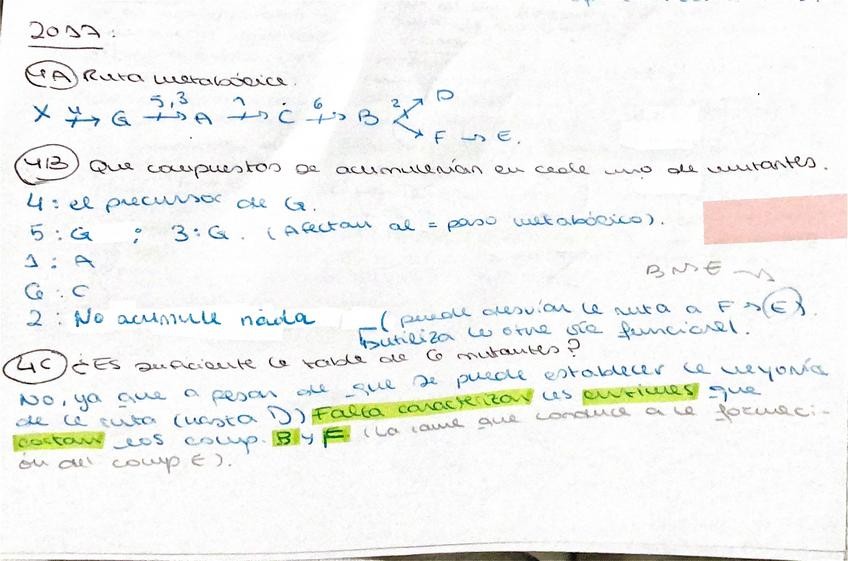 2017:
4A Ruta metabólica.
X 4→ G 5,3→ A 1→ C 6→ B 2→ D
F → E.
4B Que compuestos se acumularían en cada uno de mutantes.
4: el precursor de G.
5: G ; 3: G. (Afectan al = paso metabólico).
1: A
B → E →
6: C
2: No acumule nada (puede desviar la ruta a F → E).
utiliza la otra vía funcional.
4C ¿Es suficiente la tabla de 6 mutantes?
No, ya que a pesar de que se puede establecer la mayoría
de la ruta (hasta D) Falta caracterizar las enzimas que
cortan los comp. B y F (La rama que conduce a la formaci-
ón del comp E).